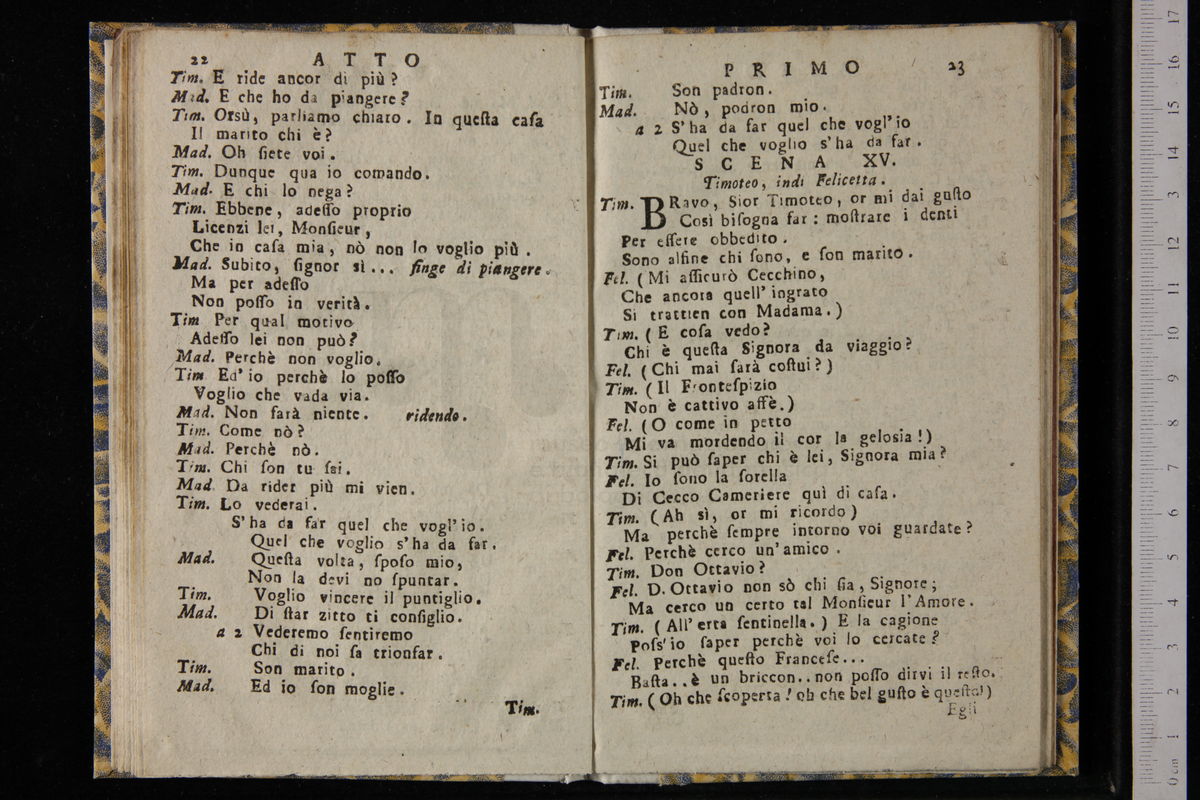 22 ATTO
Tim. E ride ancor di più?
Mad. E che ho da piangere?
Tim. Orsù, parliamo chiaro. In queſta caſa
Il marito chi è?
Mad. Oh ſiete voi.
Tim. Dunque qua io comando.
Mad. E chi lo nega?
Tim. Ebbene, adeſſo proprio
Licenzi lei, Monſieur,
Che in caſa mia, nò non lo voglio più.
Mad. Subito, ſignor sì... finge di piangere.
Ma per adeſſo
Non poſſo in verità.
Tim Per qual motivo
Adeſſo lei non può?
Mad. Perchè non voglio.
Tim Ed' io perchè lo poſſo
Voglio che vada via.
Mad. Non farà niente. ridendo.
Tim. Come nò?
Mad. Perchè nò.
Tim. Chi ſon tu ſai.
Mad. Da rider più mi vien.
Tim. Lo vederai.
S'ha da far quel che vogl'io.
Quel che voglio s'ha da far.
Mad. Queſta volta, ſpoſo mio,
Non la devi no ſpuntar.
Tim. Voglio vincere il puntiglio.
Mad. Di ſtar zitto ti conſiglio.
a 2 Vederemo ſentiremo
Chi di noi ſa trionfar.
Tim. Son marito.
Mad. Ed io ſon moglie.
Tim.
PRIMO 23
Tim. Son padron.
Mad. Nò, podron mio.
a 2 S'ha da far quel che vogl'io
Quel che voglio s'ha da far.
SCENA XV.
Timoteo, indi Felicetta.
Tim. BRavo, Sior Timoteo, or mi dai guſto
Così biſogna far: moſtrare i denti
Per eſſere obbedito.
Sono alfine chi ſono, e ſon marito.
Fel. (Mi aſſicurò Cecchino,
Che ancora quell' ingrato
Si trattien con Madama.)
Tim. (E coſa vedo?
Chi è queſta Signora da viaggio?
Fel. (Chi mai ſarà coſtui?)
Tim. (Il Fronteſpizio
Non è cattivo affè.)
Fel. (O come in petto
Mi va mordendo il cor la geloſia!)
Tim. Si può ſaper chi è lei, Signora mia?
Fel. Io ſono la ſorella
Di Cecco Cameriere quì di caſa.
Tim. (Ah sì, or mi ricordo)
Ma perchè ſempre intorno voi guardate?
Fel. Perchè cerco un' amico.
Tim. Don Ottavio?
Fel. D. Ottavio non sò chi ſia, Signore;
Ma cerco un certo tal Monſieur l'Amore.
Tim. (All' erta ſentinella.) E la cagione
Poſs'io ſaper perchè voi lo cercate?
Fel. Perchè queſto Franceſe...
Baſta..è un briccon..non poſſo dirvi il reſto.
Tim. (Oh che ſcoperta! oh che bel guſto è queſto!)
Egli